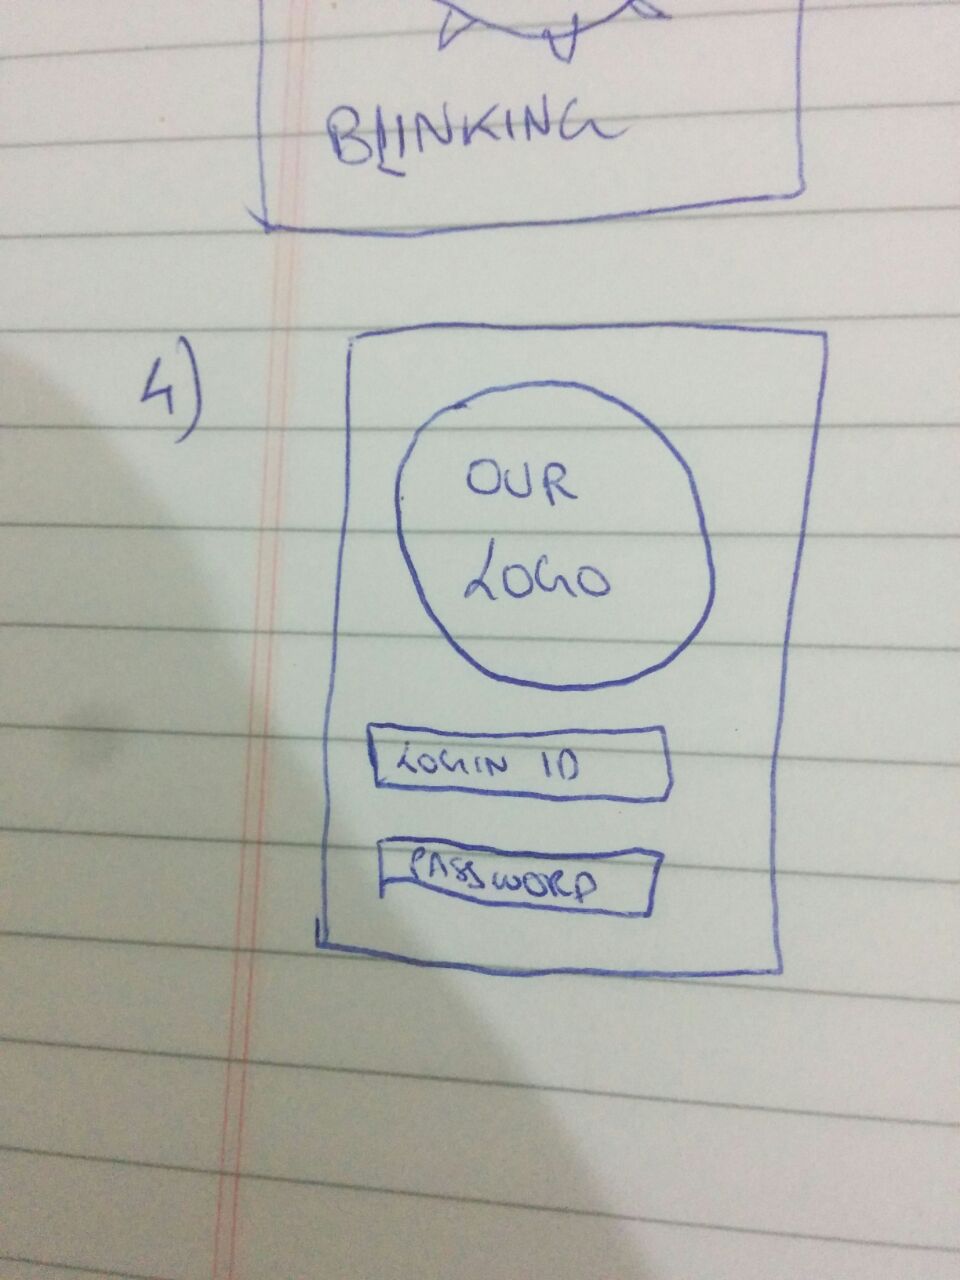 BLINKING
4)
OUR
LOGO
LOGIN ID
PASSWORD